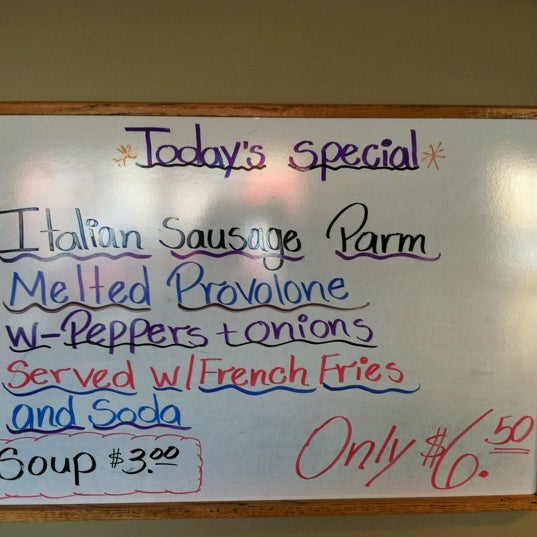 Today's special
Italian Sausage Parm
Melted Provolone
w-Peppers + onions
Served w/French Fries
and Soda
Soup $3.00
Only $6.50